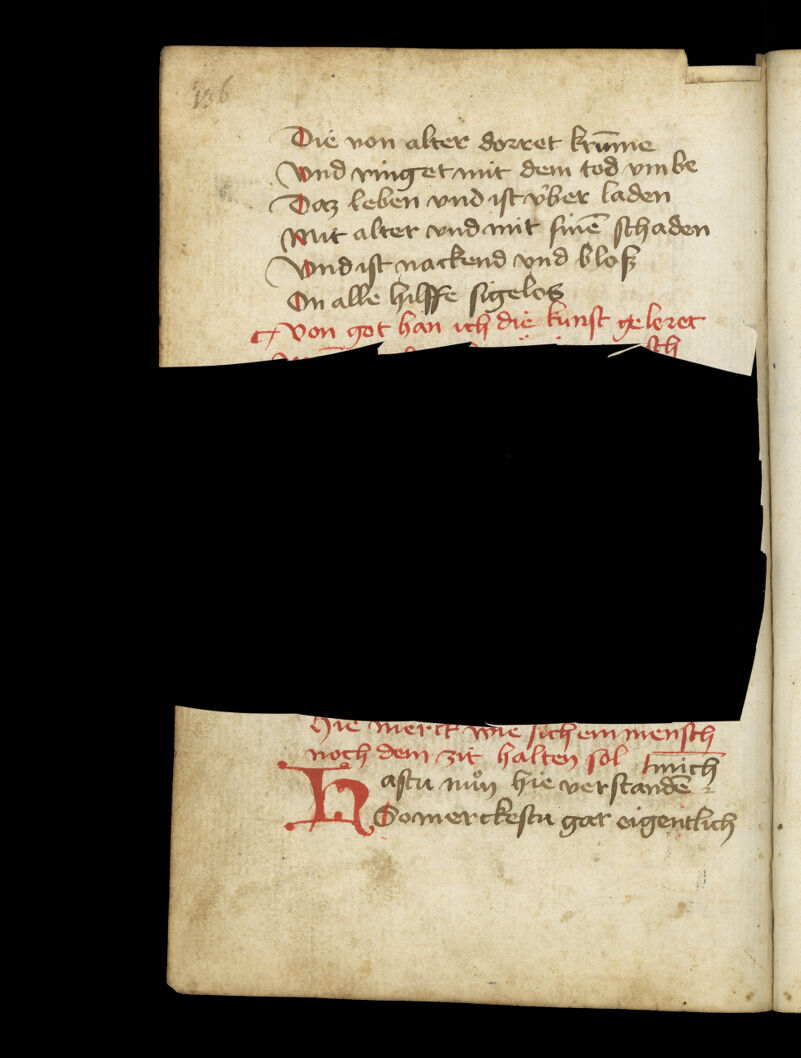 136
Die von alter dorret krūme
Vnd ringet mit dem tod vmbe
Daz leben vnd ist v̈ber laden
Mit alter vnd mit sinē schaden
Vnd ist nackend vnd bloß
On alle hilffe sigelos
Von got han ich die kunst geleret
sch
Hie merck wie sich ein mensch
noch dem zit halten sol
mich
Hastu nuͦn hie verstandē
So merckestu gar eigentlich